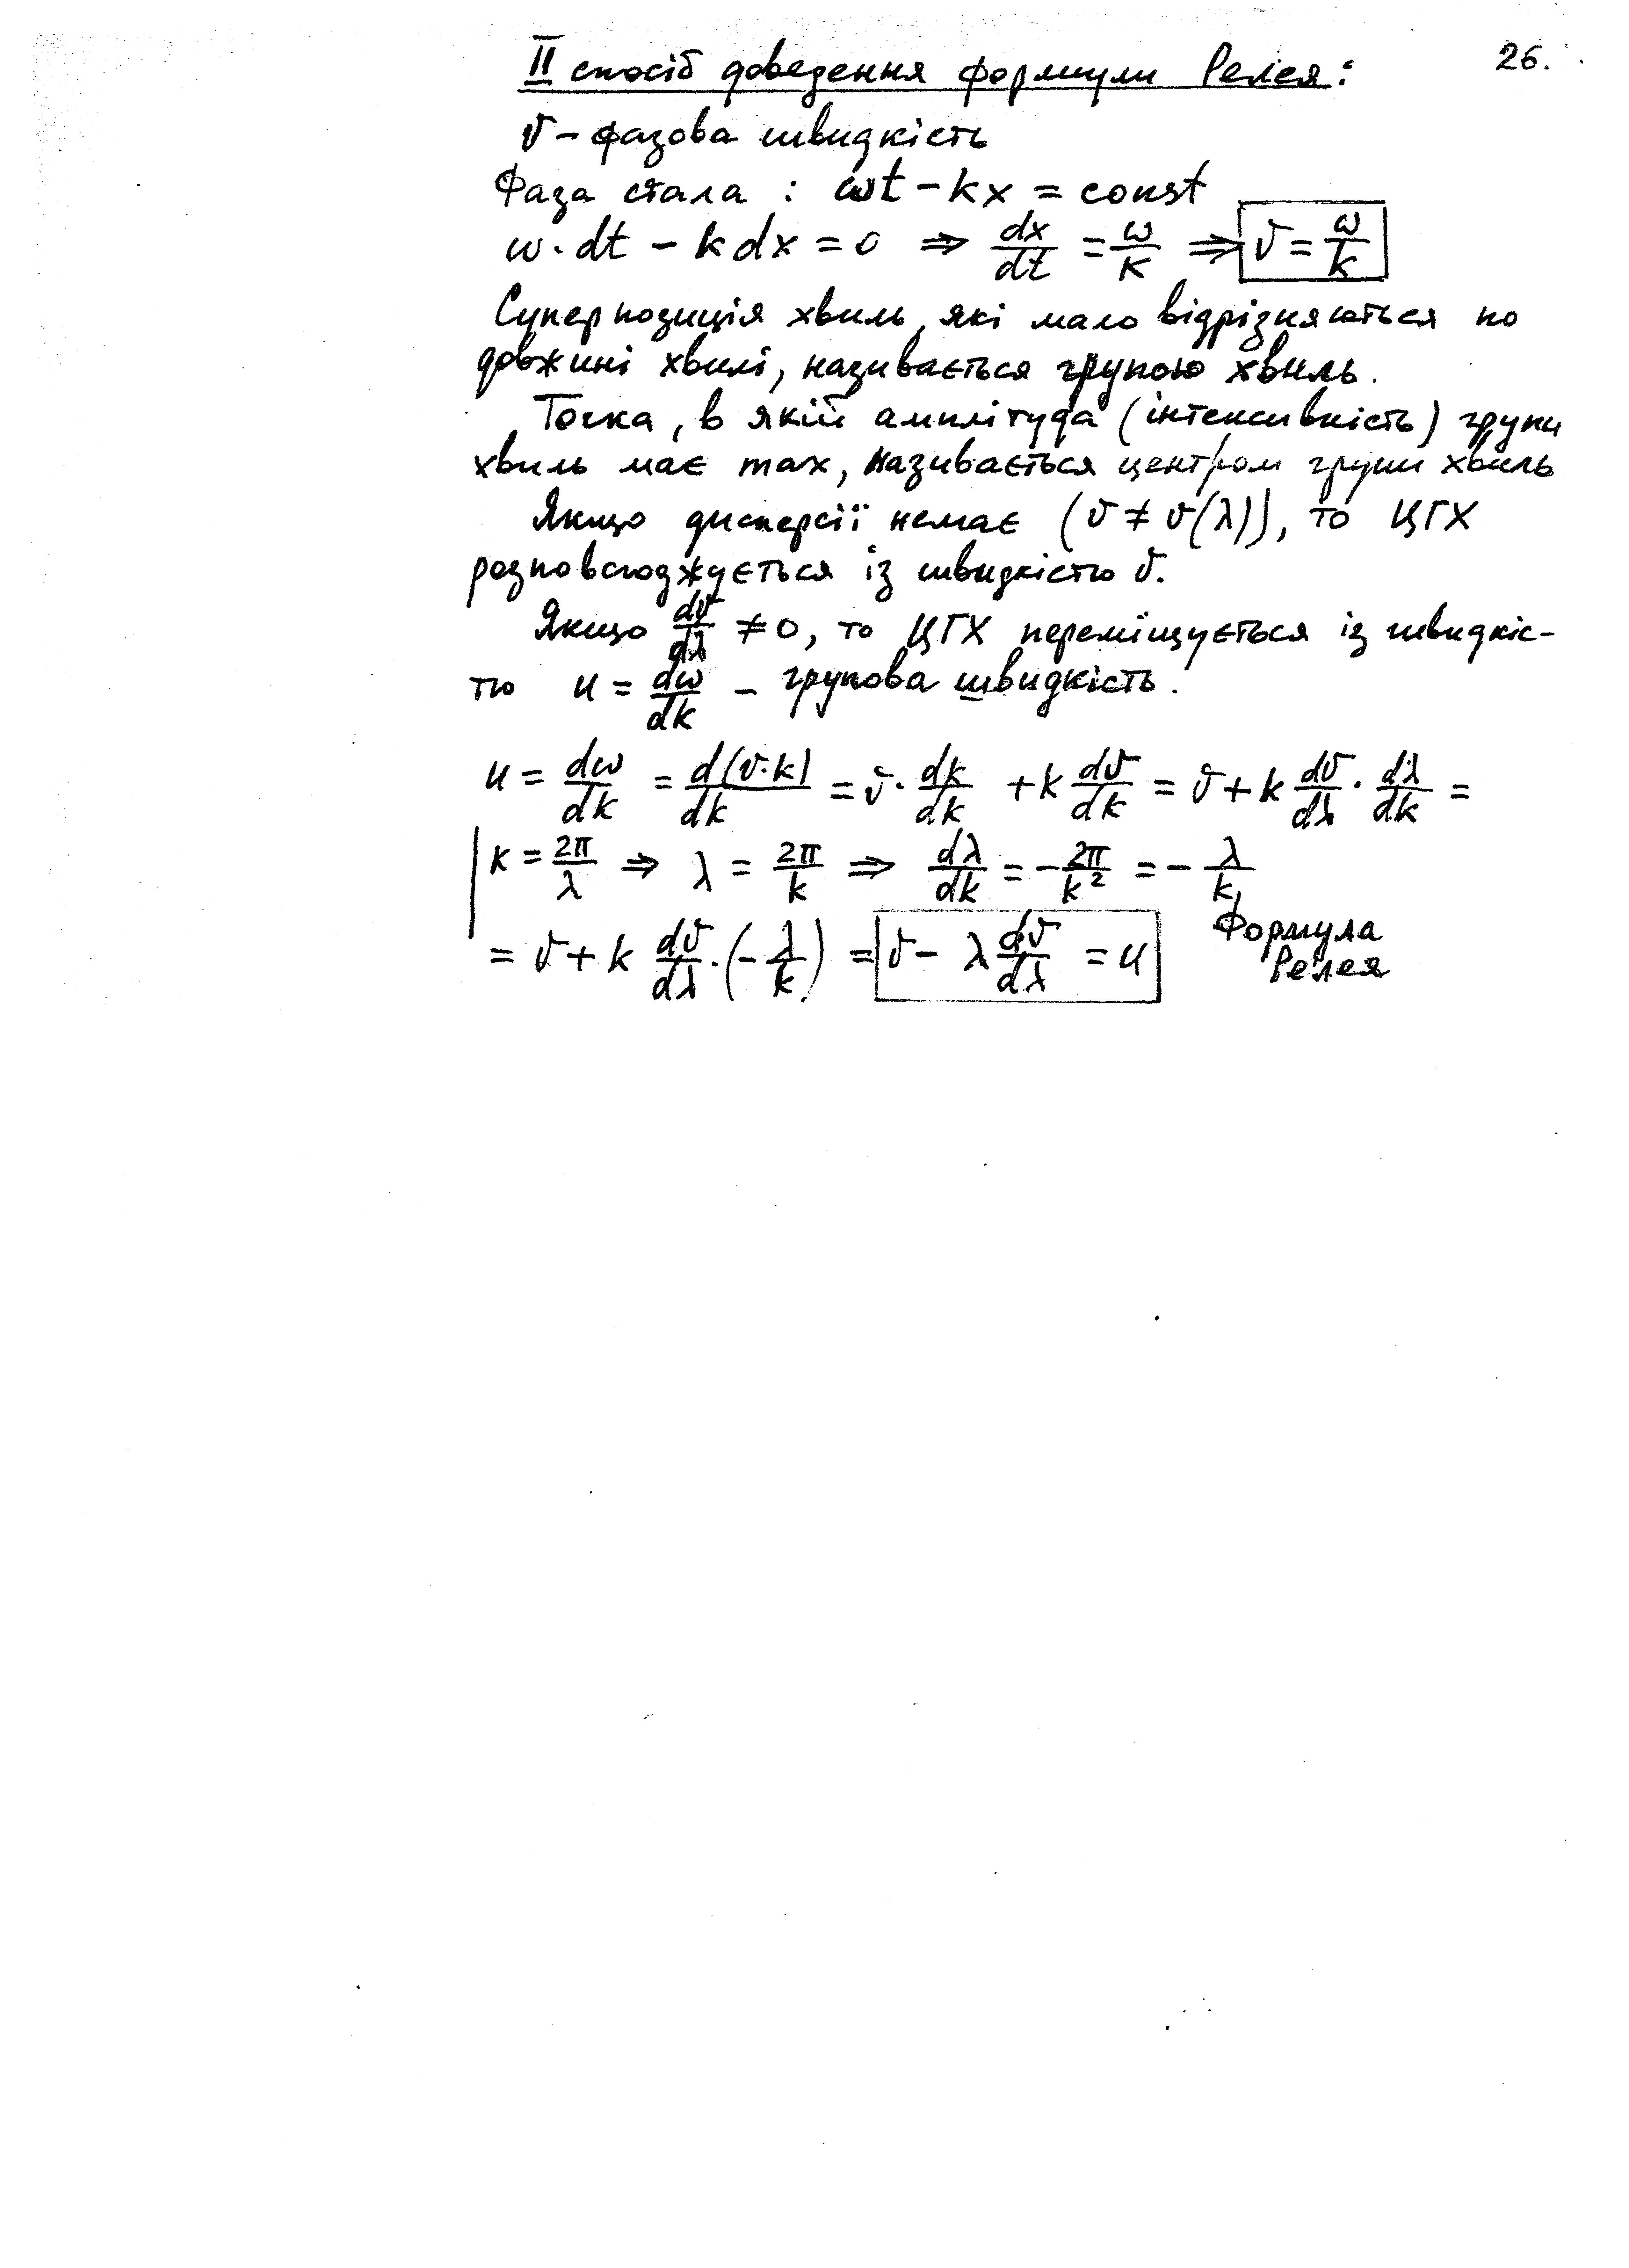 26.
II спосіб доведення формули Релея:
v – фазова швидкість
Фаза стала : ωt – kx = const
ω·dt – k dx = 0 ⇒ dx/dt = ω/k ⇒ v = ω/k
Суперпозиція хвиль, які мало відрізняються по
довжині хвилі, називається групою хвиль.
Точка, в якій амплітуда (інтенсивність) групи
хвиль має max, називається центром групи хвиль
Якщо дисперсії немає (v ≠ v(λ)), то ЦГХ
розповсюджується із швидкістю v.
Якщо dv/dλ ≠ 0, то ЦГХ переміщується із швидкіс-
тю u = dω/dk – групова швидкість.
u = dω/dk = d(v·k)/dk = v·dk/dk + k dv/dk = v + k dv/dλ · dλ/dk =
| k = 2π/λ ⇒ λ = 2π/k ⇒ dλ/dk = – 2π/k² = – λ/k,
= v + k dv/dλ · (– λ/k) = v – λ dv/dλ = u Формула
Релея